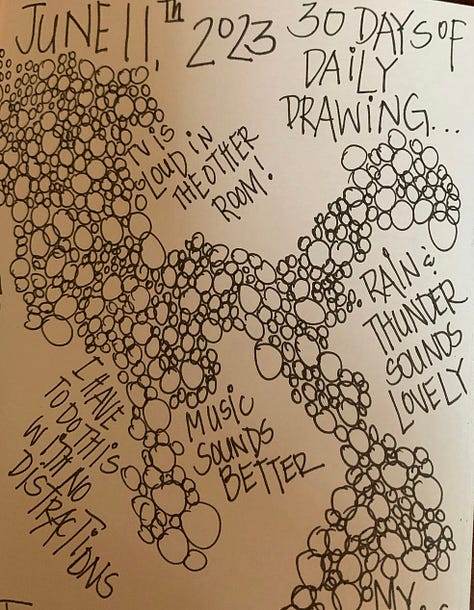 JUNE 11,TH 2023
30 DAYS OF
DAILY
DRAWING...
TV IS
LOUD IN
THE OTHER
ROOM!
RAIN &
THUNDER
SOUNDS
LOVELY
I HAVE
TO DO THIS
WITH NO
DISTRACTIONS
MUSIC
SOUNDS
BETTER
MY